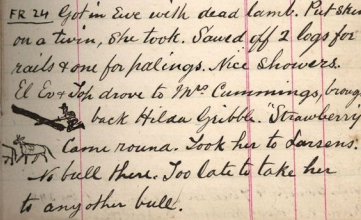 FR 24 Got in Ewe with dead lamb. Put skin
on a twin, she took. Sawed off 2 logs for
rails & one for palings. Nice showers.
El Ev & Top drove to Mrs Cummings, brough
back Hilda Gribble. "Strawberry
Came round. Took her to Larsens.
No bull there. Too late to take her
to any other bull.